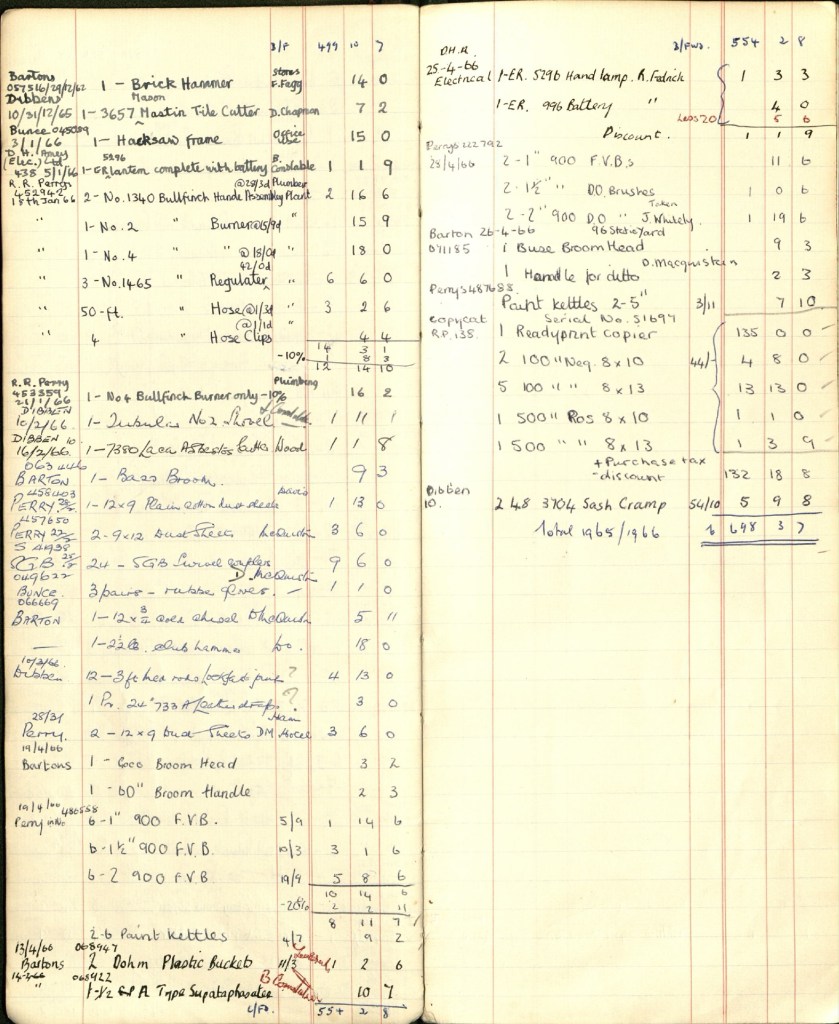 B/F 499 10 7
Bartons Stores
057516/29/12/62 1 - Brick Hammer F. Fagg 14 0
Dibbens Mason
10/31/12/65 1 - 3657 Mastin Tile Cutter D. Chapman 7 2
Bunce 045089 Office
3/1/66 1 - Hacksaw frame Use 15 0
D. H. Amey 5296 B.
(Elec.) Ltd
438 5/1/66 1 - ER lantern complete with battery Constable 1 1 9
R. R. Perrys @28/3d Plumber
452942 2 - No. 1340 Bullfinch Handle Assembly Plant 2 16 6
18th Jan 66
" 1 - No. 2 " Burner @15/9d " 15 9
" 1 - No. 4 " " @18/0d " 18 0
42/0d
" 3 - No. 1465 " Regulater " 6 6 0
" 50 - ft. " Hose @1/3d " 3 2 6
@1/1d
" 4 " Hose Clips " 4 4
14 3 1
-10% 1 8 3
12 14 10
R. R. Perry Plumbing
453359
21/1/66 1 - No 4 Bullfinch Burner only - 10% 16 2
DIBBEN
10/2/66. 1 - Tubular No 2 Shovel 1 11 1
DIBBEN 10
16/2/66. 1 - 7380 Laca Asbestos Wood 1 1 8
063446
BARTON 1 - Bass Broom. 9 3
458403 Davis
PERRY 1 - 12 x 9 Plain cotton dust sheet 1 13 0
457650
PERRY 2 - 9 x 12 Dust Sheets McQuistin 3 6 0
SGB 24 - SGB Swivel couplers 9 6 0
049622 D. McQuistin
BUNCE. 3 pairs - rubber gloves. - 1 1 0
066669
BARTON 1 - 12 x cold chisel D McQuistin 5 11
— 1 - 2½ lb. club hammer Do. 18 0
10/3/66.
Dibben 12 - 3 ft hex rods Lockfast joint ? 4 13 0
1 Pr. 24" 733 A ? 3 0
28/31 Ham
Perry. 2 - 12 x 9 Dust Sheets DM Hotel 3 6 0
19/4/66
Bartons 1 - Coco Broom Head 3 2
1 - 60" Broom Handle 2 3
19/4/66 486558
Perry inNo 6 - 1" 900 F.V.B. 5/9 1 14 6
6 - 1½" 900 F.V.B. 10/3 3 1 6
6 - 2 900 F.V.B. 19/9 5 8 6
10 14 6
-20% 2 2 11
8 11 7
2 - 6 Paint Kettles 4/7 9 2
13/4/66 068947
Bartons 2 Dohm Plastic Buckets 11/3 1 2 6
068422 B Constable
" 1 - 1½ A Type Supataphasater 10 7
C/Fd. 554 2 8
D.H.A. B/Fwd. 554 2 8
25-4-66
Electrical 1 - ER. 5296 Hand lamp. R. Fedrick 1 3 3
1 - ER. 996 Battery " 4 0
Less 20 5 6
Discount. 1 1 9
Perrys 222792
28/4/66 2 - 1" 900 F.V.B.s 11 6
2 - 1½" " D.O. Brushes 1 0 6
Taken
2 - 2" 900 D.O " J. Whitely 1 19 6
Barton 26-4-66 96 Static Yard
071185 1 Buse Broom Head 9 3
D. Macquistein
1 Handle for ditto 2 3
Perrys 487688
Paint Kettles 2 - 5" 3/11 7 10
Copycat Serial No. 51697
R.P. 135. 1 Readyprint Copier 135 0 0
2 100" Neg. 8 x 10 44/- 4 8 0
5 100 " " 8 x 13 13 13 0
1 500" Pos 8 x 10 1 1 0
1 500 " " 8 x 13 1 3 9
+ Purchase tax
- discount 132 18 8
Dibben
10. 2 48 3704 Sash Cramp 54/10 5 9 8
Total 1965/1966 £ 698 3 7